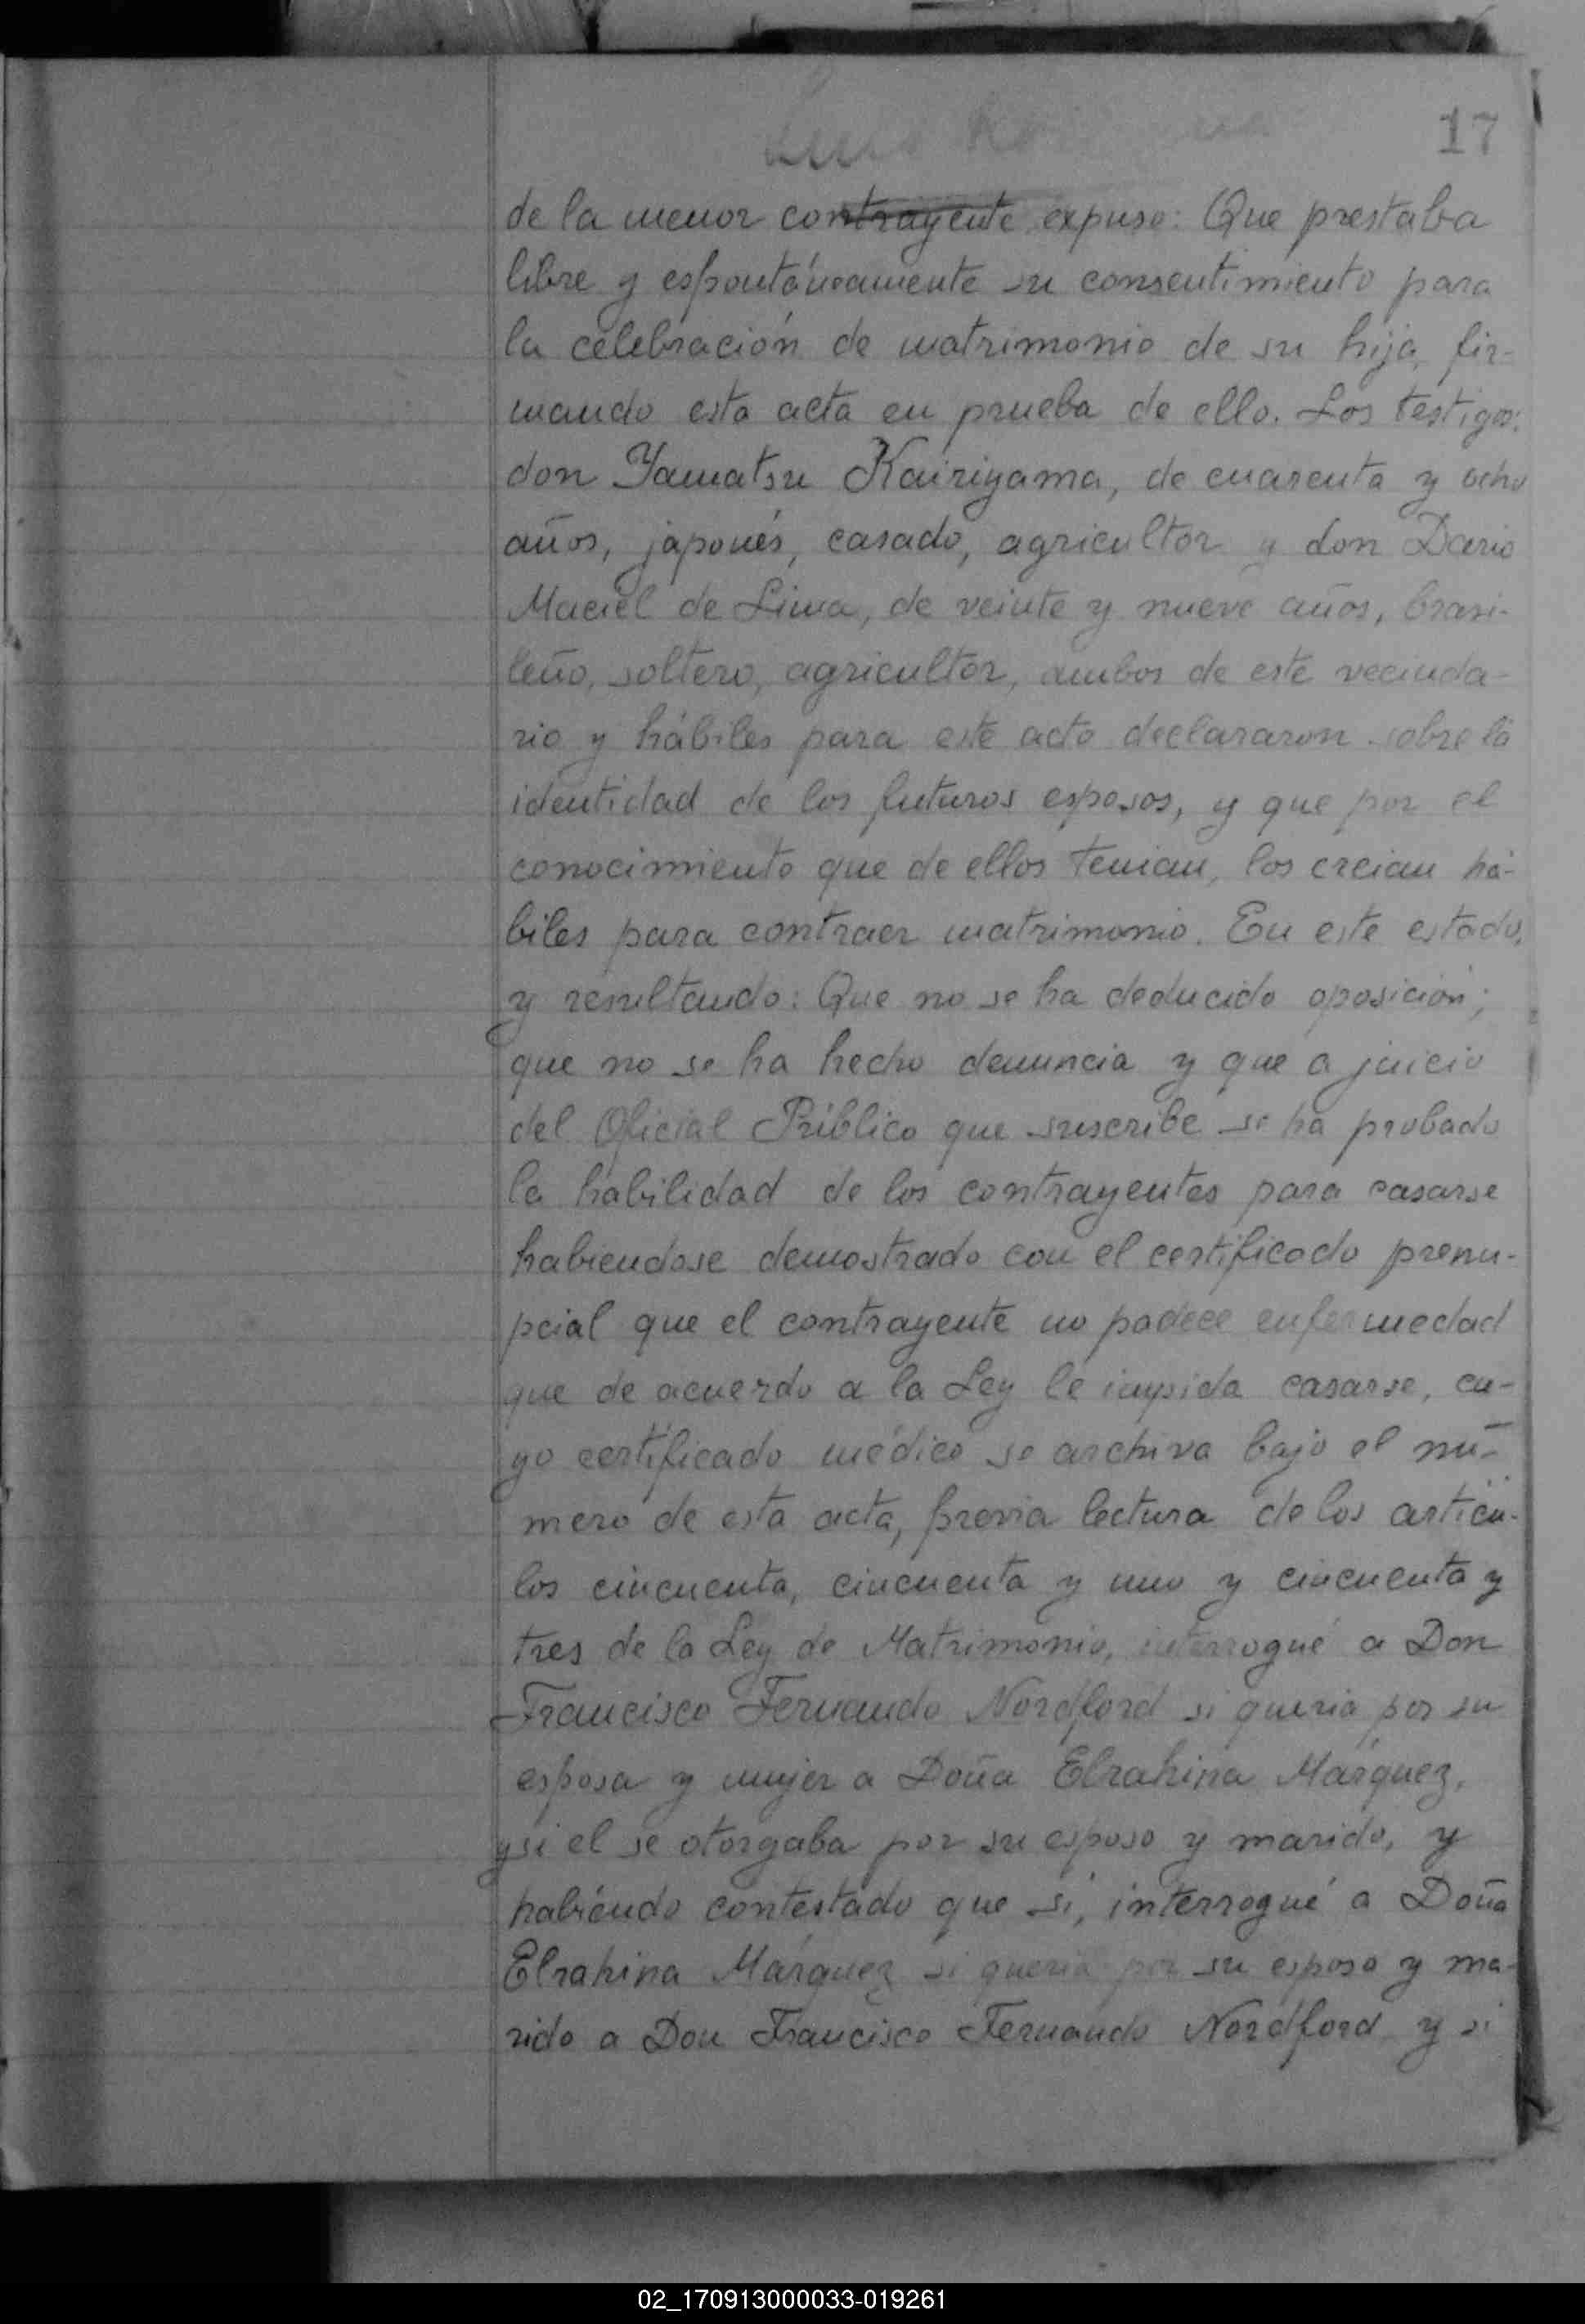 17
de la menor contrayente expuso: Que prestaba
libre y espontáneamente su consentimiento para
la celebración de matrimonio de su hija, fir-
mando esta acta en prueba de ello. Los testigos:
don Yamatsu Kairiyama, de cuarenta y ocho
años, japonés, casado, agricultor y don Dario
Maciel de Lima, de veinte y nueve años, brasi-
leño, soltero, agricultor, ambos de este vecinda-
rio y hábiles para este acto declararon sobre la
identidad de los futuros esposos, y que por el
conocimiento que de ellos tenian, los creian há-
biles para contraer matrimonio. En este estado,
y resultando: Que no se ha deducido oposición;
que no se ha hecho denuncia y que a juicio
del Oficial Público que suscribe se ha probado
la habilidad de los contrayentes para casarse
habiendose demostrado con el certificado prenu-
pcial que el contrayente no padece enfermedad
que de acuerdo a la Ley le impida casarse, cu-
yo certificado médico se archiva bajo el nú-
mero de esta acta, previa lectura de los artícu-
los cincuenta, cincuenta y uno y cincuenta y
tres de la Ley de Matrimonio, interrogué a Don
Francisco Fernando Nordford si queria por su
esposa y mujer a Doña Elrahina Márquez,
y si el se otorgaba por su esposo y marido, y
habiéndo contestado que si, interrogué a Doña
Elrahina Márquez si queria por su esposo y ma-
rido a Don Francisco Fernando Nordford y si
02_170913000033-019261